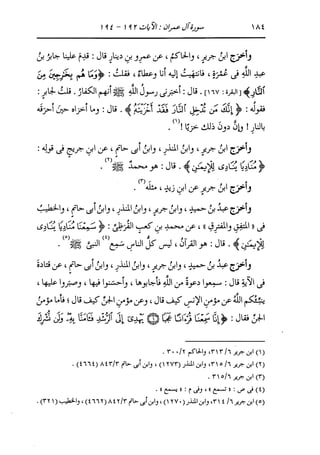 ١٨٤ سورة آل عمران : الآيات ١٩٢ - ١٩٤
وأخرج ابنُ جريرٍ ، والحاكمُ ، عن عمرِو بنِ دينارٍ قال : قدِمَ علينا جابرُ بنُ
عبدِ اللَّهِ فى عُمْرَةٍ ، فانتهَيتُ إليه أنا وعطاءٌ ، فقلتُ : ﴿وَمَا هُم بِخَارِجِينَ مِنَ
النَّارِ﴾ [البقرة : ١٦٧] . قال : أخبَرنى رسولُ اللَّهِ ﷺ أنهم الكفارُ . قلتُ لجابرٍ :
فقولُه : ﴿إِنَّكَ مَن تُدْخِلِ النَّارَ فَقَدْ أَخْزَيْتَهُ﴾ . قال : وما أخزاه حينَ أحرَقه
بالنارِ ! وإنَّ دونَ ذلك خزيًا !(١) .
وأخرج ابنُ جريرٍ ، وابنُ المنذرِ ، وابنُ أبى حاتمٍ ، عن ابنِ جريجٍ فى قولِه :
﴿مُنَادِيًا يُنَادِى لِلْإِيمَـٰنِ﴾ . قال : هو محمدٌ ﷺ(٢) .
وأخرج ابنُ جريرٍ عن ابنِ زيدٍ ، مثلَه(٣) .
وأخرج عبدُ بنُ حميدٍ ، وابنُ جريرٍ ، وابنُ المنذرِ ، وابنُ أبى حاتمٍ ، والخطيبُ
فى « المتفقِ والمفترقِ » ، عن محمدِ بنِ كعبٍ القُرَظِىِّ : ﴿سَمِعْنَا مُنَادِيًا يُنَادِى
لِلْإِيمَـٰنِ﴾ . قال : هو القرآنُ ، ليس كلُّ الناسِ سَمِع(٤) النبىَّ ﷺ(٥) .
وأخرج عبدُ بنُ حميدٍ ، وابنُ جريرٍ ، وابنُ المنذرِ ، وابنُ أبى حاتمٍ ، عن قتادةَ
فى الآيةِ قال : سمِعوا دعوةً من اللَّهِ فأجابوها ، وأحسَنوا فيها ، وصبَروا عليها ،
ينبِّئُكم اللَّهُ عن مؤمنِ الإنسِ كيف قال ، وعن مؤمنِ الجنِّ كيف قال ؛ فأما مؤمنُ
الجنِّ فقال : ﴿إِنَّا سَمِعْنَا قُرْءَانًا عَجَبًا ۝ يَهْدِىٓ إِلَى الرُّشْدِ فَـَٔامَنَّا بِهِۦ وَلَن نُّشْرِكَ
(١) ابن جرير ٦/ ٣١٣، والحاكم ٢/ ٣٠٠ .
(٢) ابن جرير ٦/ ٣١٥، وابن المنذر (١٢٧٣) ، وابن أبى حاتم ٣/ ٨٤٣ (٤٦٦٤) .
(٣) ابن جرير ٦/ ٣١٥ .
(٤) فى ص : « تسمع » ، وفى م : « يسمع » .
(٥) ابن جرير ٦/ ٣١٤، وابن المنذر (١٢٧٠) ، وابن أبى حاتم ٣/ ٨٤٢ (٤٦٦٢) ، والخطيب (٣٢١) .